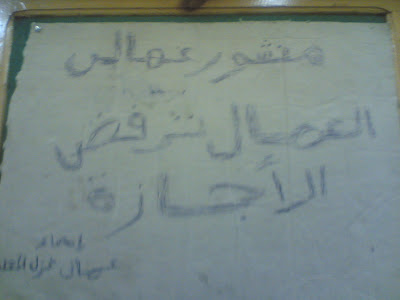 منشور عمالى
العمال ترفض
الأجازة
إمضاء
عمال غزل المحلة